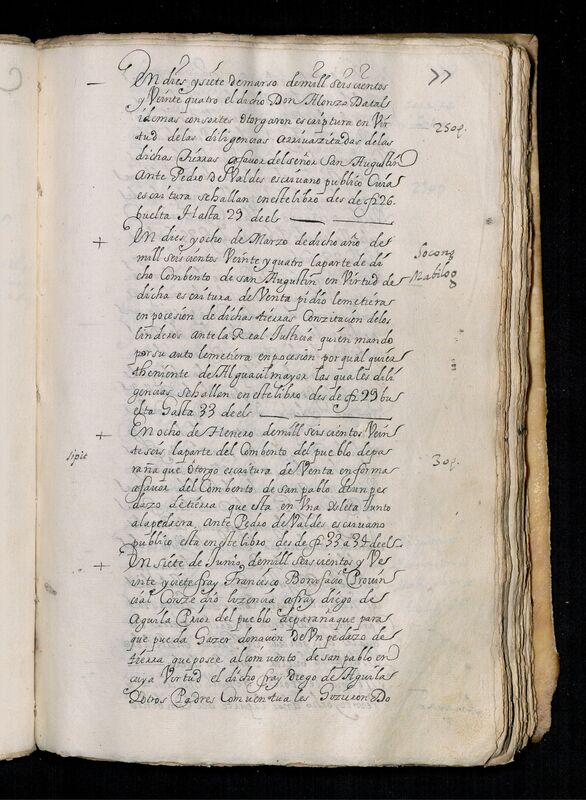 En dies y siete de marso de mill seis cientos
y Veinte quatro el dicho Don Alonzo Datal
idemas consortes otorgaron escriptura en Vir
tud de las diligencias arriva zitadas de las
dichas tierras a favor del señor San Augustin
Ante Pedro de Valdes escrivano publico Cuia
escritura se hallan en este libro des de fp 26
buelta Hasta 29 de els
250p.
En dies y ocho de Marzo de dicho año de
mill seis cientos Veinte y quatro la parte de di
cho Combento de san Augustin en Virtud de
dicha escritura de Venta pidio le metieras
en pocesion de dichas tierras Conzitacion de los
linderos ante la Real Justicia quien mando
por su auto le metiera en pocesion por qual quiera
theniente de Alguacil mayor las quales dili
gencias se hallen en este libro des de fp 29 bu
elta hasta 33 de els
Socong
Mabilog
En ocho de Henero de mill seis cientos Vein
te seis la parte del Combento del pueblo de pa
rañaque otorgo escritura de Venta en forma
a favor del Combento de san pablo de un pe
dazo de tierra que esta en Vna Isleta Junto
a la pedrera Ante Pedro de Valdes escrivano
publico esta en este libro des de fp 33 a 34 de els
sipit
30p.
En siete de Junio de mill seis cientos y Ve
inte y siete fray Francisco Bonifacio Provin
cial Conzedio lizencia a fray diego de
Aguila Prior del pueblo de parañaque para
que pueda hazer donacion de Vn pedazo de
tierra que posee al convento de san pablo en
cuya Virtud el dicho fray Diego de Aguila
y otros Padres Conventuales hizieron Do